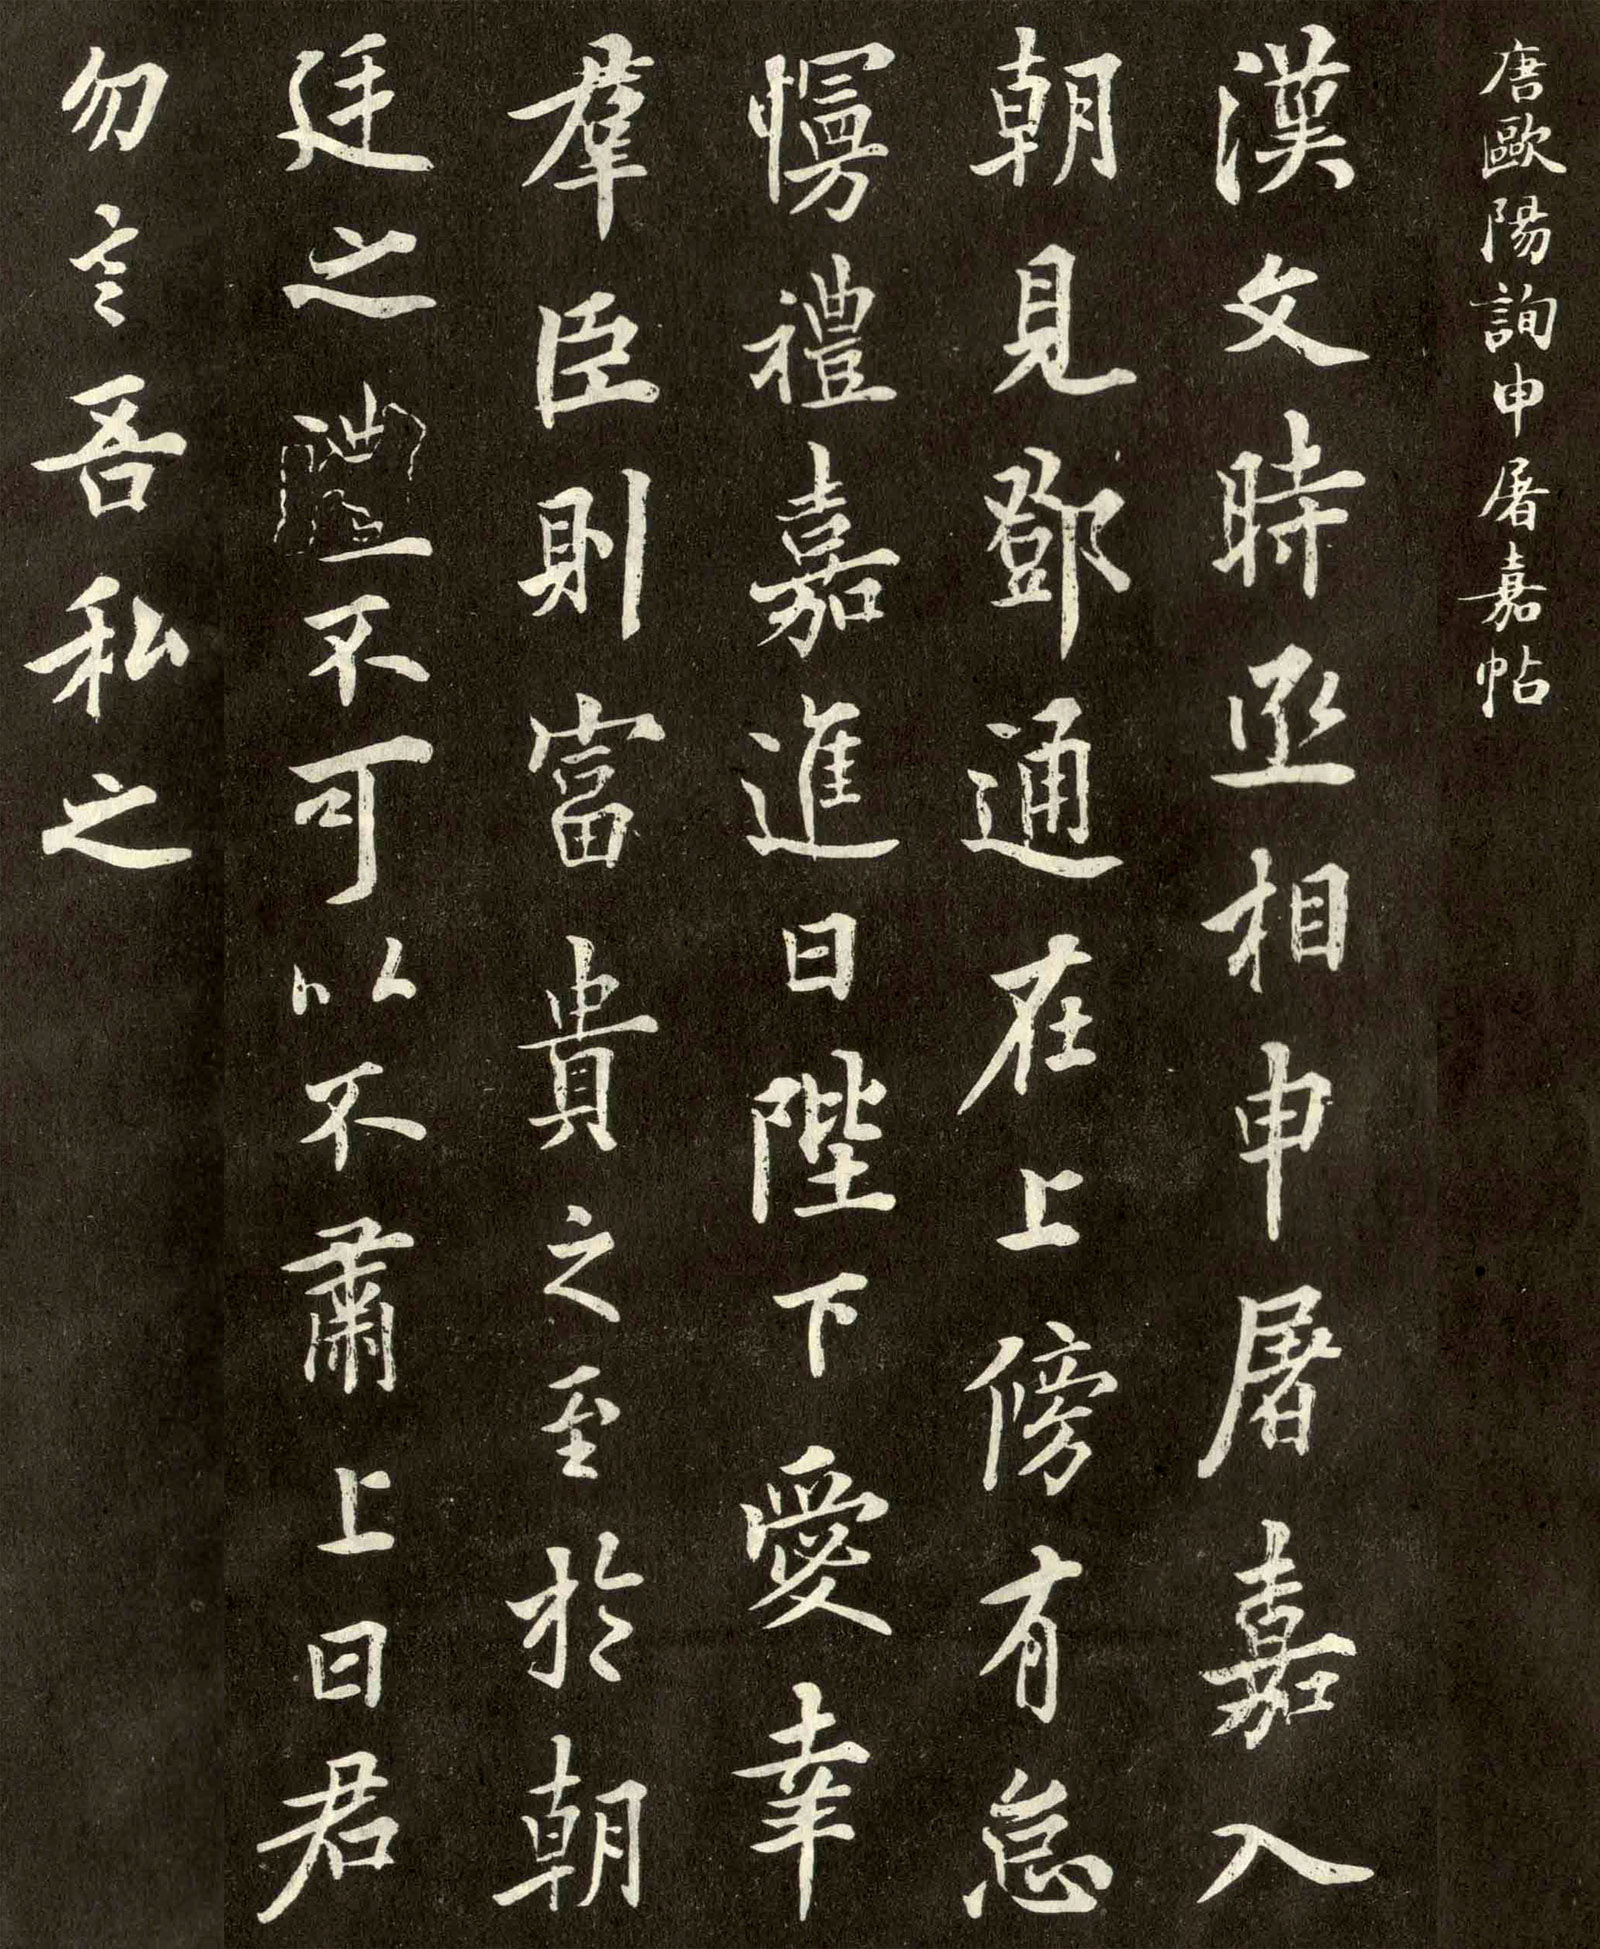 唐歐陽詢申屠嘉帖
漢文時丞相申屠嘉入
朝見鄧通在上傍有怠
慢禮嘉進曰陛下愛幸
羣臣則富貴之至於朝
廷之禮不可以不肅上曰君
勿言吾私之